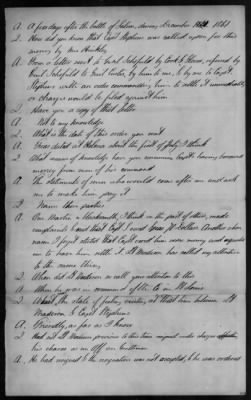 A. A few days after the battle of Helena, during December 1863
Q. How did you know that Capt Stephens was called upon for this
money by Mr Hinkley
A. From a letter sent to Genl Schofield by Cook & Stone, referred by
Genl Schofield to Genl Curtis, by him to me, & by me to Capt
Stephens with an order commanding him to settle it immediately
or charges would be filed against him
Q. Have you a copy of that letter
A. Not to my knowledge
Q. What is the date of this order you sent
A. It was dated at Helena about the first of July I think
Q. What means of knowledge have you concerning Capt having borrowed
money from men of his command
A. The statements of men who would come after me and ask
me to make him pay it
Q. Name those parties
A. One Martin a blacksmith, I think in the first of others, made
complaints that Capt owed him dollars Another whose
name I forget stated that Capt owed him some money and requested
me to have him settle it. Lt Madison has called my attention
to the same thing
Q. When did Lt Madison so call your attention to this
A. When he was in command of Co in Helena
Q. What the state of feeling existing at that time between Lt
Madison & Capt Stephens
A. Friendly, as far as I know
Q. Had not Lt Madison previous to this time resigned under charges
his charac as an Off and Gentleman
A. He had resigned & the resignation was not accepted, & he was ordered